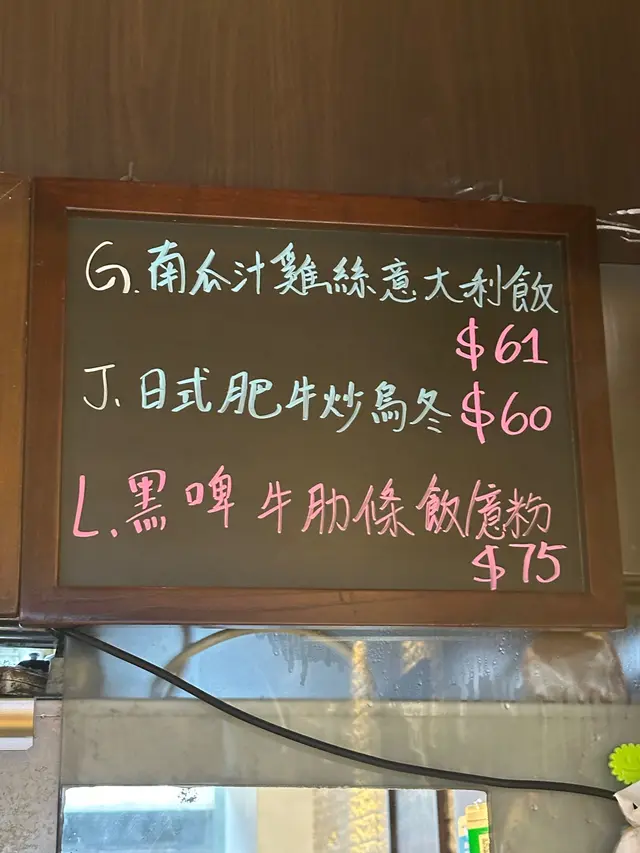 G. 南瓜汁雞絲意大利飯
$61
J. 日式肥牛炒烏冬 $60
L. 黑啤牛肋條飯/意粉
$75